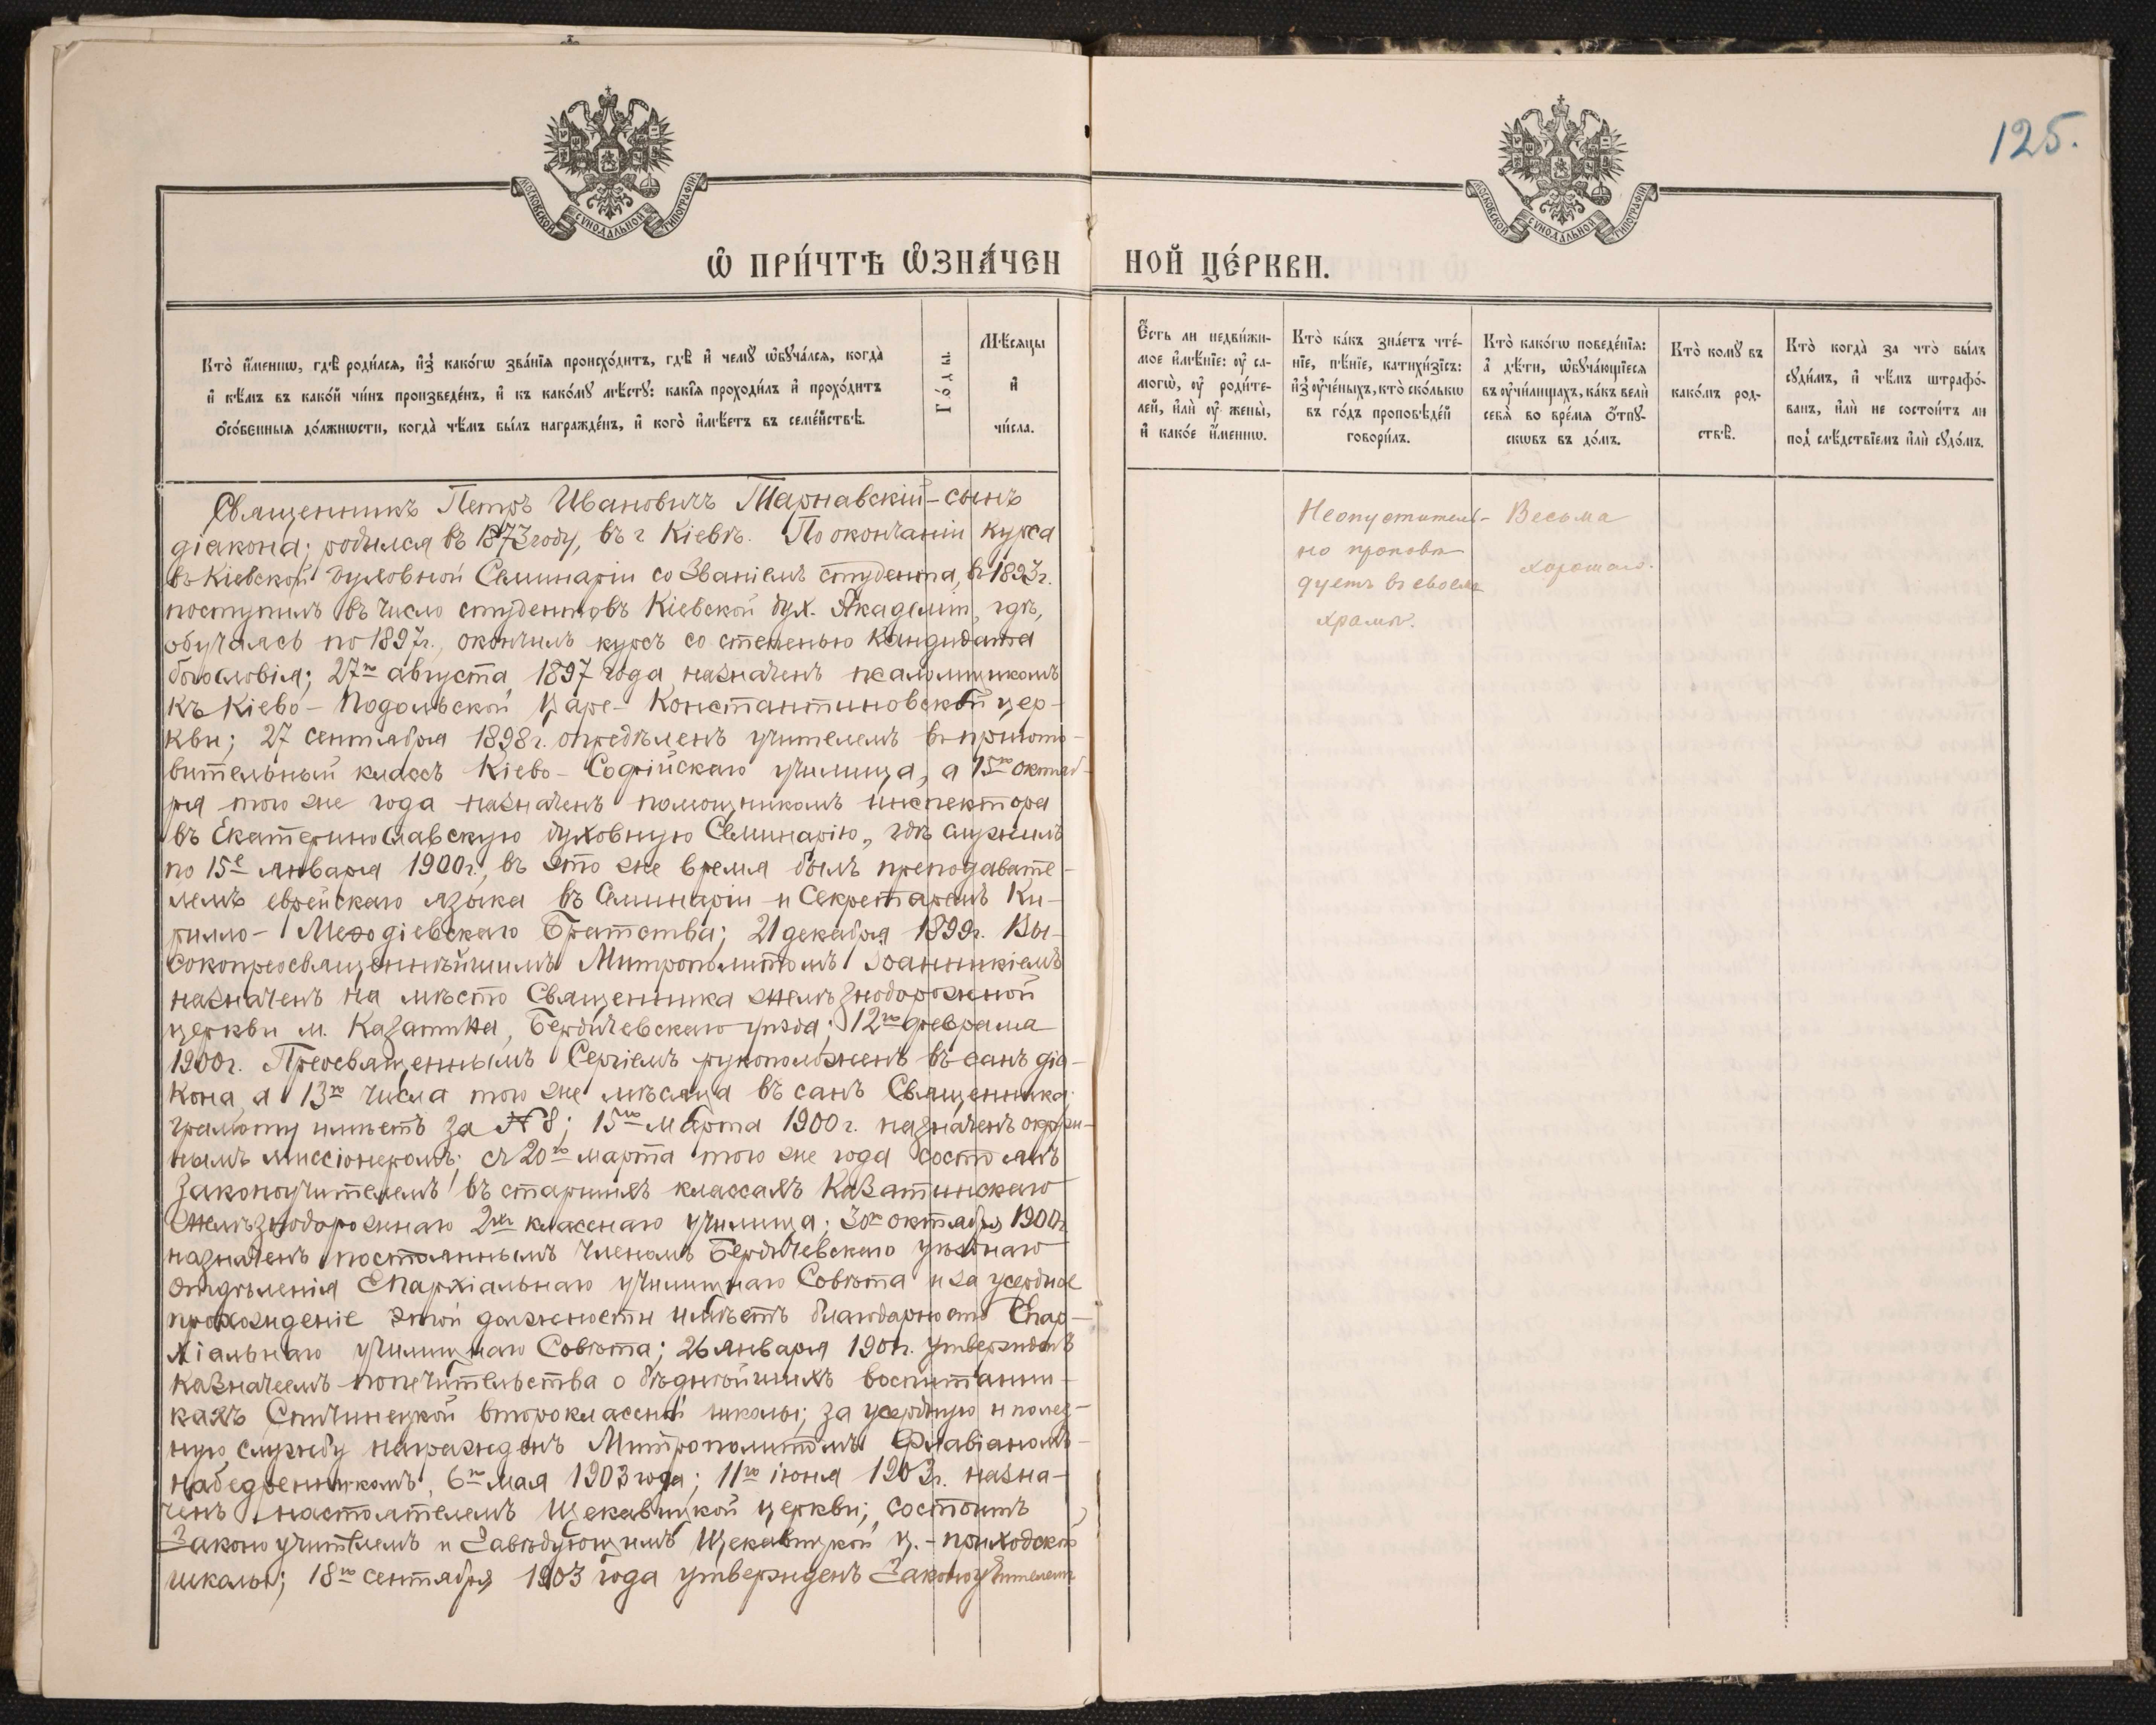 125.
МОСКОВСКОЙ СУНОДАЛЬНОЙ ТИПОГРАФІИ
МОСКОВСКОЙ СУНОДАЛЬНОЙ ТИПОГРАФІИ
Ѡ ПРИ́ЧТѢ ѠЗНА́ЧЕН НОЙ ЦЕ́РКВИ.
Кто̀ и҆́меннѡ, гдѣ̀ роди́лся, и҆з̾ како́гѡ зва́нїѧ происхо́дитъ, гдѣ̀ и҆ чемꙋ̀ ѡ҆бꙋча́лсѧ, когда̀
и҆ кѣ́мъ въ како́й чи́нъ произведе́нъ, и҆ къ како́мꙋ мѣ́стꙋ: какі̑ѧ проходи́лъ и҆ прохо́дитъ
ѻ҆со́бенныѧ до́лжнѡсти, когда̀ чѣ́мъ бы́лъ награжде́нъ, и҆ кого̀ и҆мѣ́етъ въ семе́йствѣ.
Го́ды.
Мѣ́сѧцы
и҆
чи́сла.
Є҆́сть ли недви́жи-
мое и҆мѣ́нїе: оу҆ са-
могѡ̀, оу҆ роди́те-
лей, и҆лѝ оу҆ жены̀,
и҆ како́е и҆́меннѡ.
Кто̀ ка́къ зна́етъ чте́-
нїе, пѣ́нїе, катихи́зїсъ:
и҆з̾ оу҆че́ныхъ, кто̀ ско́лькѡ
въ го́дъ проповѣ́дей
говори́лъ.
Кто̀ како́гѡ поведе́нїѧ:
а҆ дѣ́ти, ѡ҆бꙋча́ющїесѧ
въ оу҆чи́лищахъ, ка́къ велѝ
себѧ̀ во вре́мѧ ѻ҆́тпꙋ-
скѡвъ въ до́мъ.
Кто̀ комꙋ̀ въ
како́мъ род-
ствѣ̀.
Кто̀ когда̀ за что̀ бы́лъ
сꙋди́мъ, и҆ чѣ́мъ штрафо́-
ванъ, и҆лѝ не состои́тъ ли
под̾ слѣ́дствїемъ и҆лѝ сꙋдо́мъ.
Священникъ Петръ Ивановичъ Тарнавскій – сынъ
діакона; родился въ 1873 году, въ г Кіевѣ. По окончаніи курса
въ Кіевской духовной Семинаріи со Званіемъ студента, въ 1893г.
поступилъ въ число студентовъ Кіевской дух. Академіи, гдѣ,
обучаясь по 1897г., окончилъ курсъ со степенью Кандидата
богословія; 27го августа 1897 года назначенъ псаломщикомъ
къ Кіево-Подольской Царе-Константиновской цер-
кви; 27 сентября 1898г. опредѣленъ учителемъ въ пригото-
вительный классъ Кіево-Софійскаго училища, а 15го октяб-
ря того же года назначенъ помощникомъ инспектора
въ Екатеринославскую духовную Семинарію, гдѣ служилъ
по 15е января 1900г., въ это же время былъ преподавате-
лемъ еврейскаго языка въ Семинаріи и Секретаремъ Ки-
рилло-Меѳодіевскаго Братства; 21 декабря 1899г. Вы-
сокопреосвященнѣйшимъ Митрополитомъ Іоанникіемъ
назначенъ на мѣсто Священника желѣзнодорожной
церкви м. Казатина, Бердичевскаго уѣзда; 12го февраля
1900г. Преосвященнымъ Сергіемъ рукоположенъ въ санъ діа-
кона, а 13го числа того же мѣсяца въ санъ Священника
грамоту имѣетъ за № 8; 15го марта 1900г. назначенъ окруж-
нымъ миссіонеромъ; съ 20го марта того же года состоялъ
Законоучителемъ въ старшихъ классахъ Казатинскаго
Желѣзнодорожнаго 2хъ класснаго училища; 30го октября 1900г
назначенъ постояннымъ членомъ Бердичевскаго уѣзднаго
отдѣленія Епархіальнаго училищнаго Совѣта и за усердное
прохожденіе этой должности имѣетъ благодарность Епар-
хіальнаго училищнаго Совѣта; 26 января 1901г. утвержденъ
казначеемъ попечительства о бѣднѣйшихъ воспитанни-
кахъ Спичинецкой второклассной школы; за усердную и полез-
ную службу награжденъ Митрополитомъ Флавіаномъ
набедренникомъ, 6го мая 1903 года; 11го іюня 1903г. назна-
ченъ настоятелемъ Щекавицкой церкви; состоитъ
Законоучителемъ и Завѣдующимъ Щекавицкой ц.-приходской
школы; 18го сентября 1903 года утвержденъ Законоучителемъ
Неопуститель-
но проповѣ-
дуетъ въ своемъ
храмѣ.
Весьма
хорошаго.